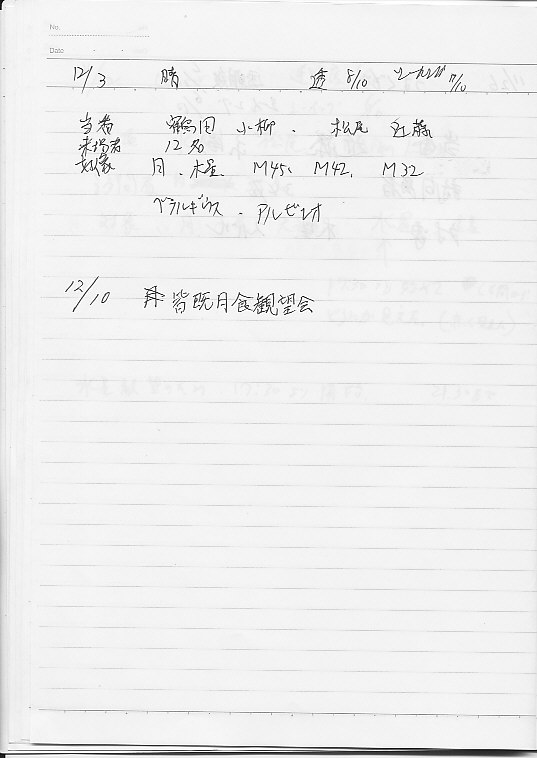 No.
Date
12/3 晴 透 8/10 シーイング 7/10
当番 鶴田 小柳 . 松尾 近藤
来場者 12名
対象 月. 木星. M45. M42. M32
ベテルギウス . アルビレオ
12/10 皆既月食観望会